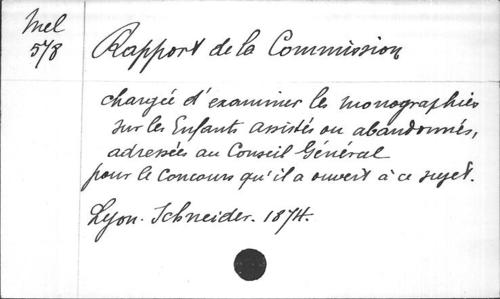 Mel
578
Rapport de la Commission
chargée d'examiner les monographies
sur les Enfants assistés ou abandonnés,
adressées au Conseil Général
pour le Concours qu'il a ouvert à ce sujet.
Lyon. Schneider. 1874.